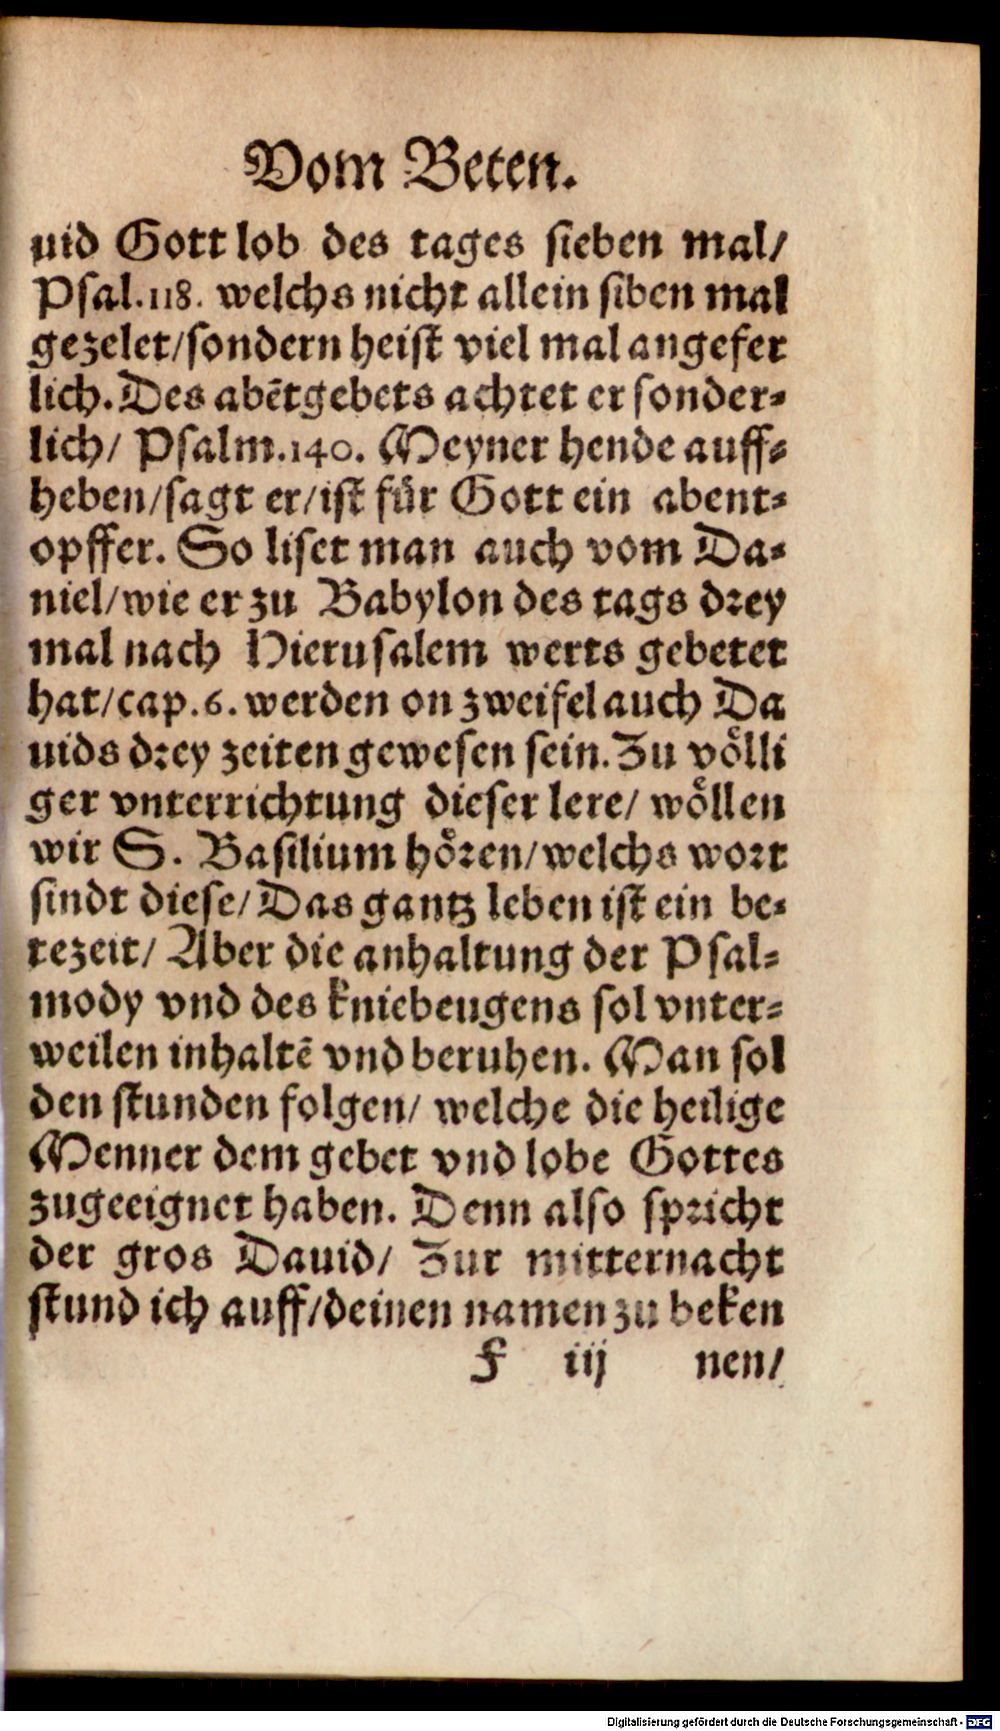 Vom Beten.
uid Gott lob des tages sieben mal/
Psal.118. welchs nicht allein siben mal
gezelet/sondern heist viel mal angefer
lich. Des abẽtgebets achtet er sonder⸗
lich/ Psalm.140. Meyner hende auff⸗
heben/sagt er/ist für Gott ein abent⸗
opffer. So liset man auch vom Da⸗
niel/wie er zu Babylon des tags drey
mal nach Hierusalem werts gebetet
hat/cap.6. werden on zweifel auch Da
uids drey zeiten gewesen sein. Zu völli
ger vnterrichtung dieser lere/ wöllen
wir S. Basilium hören/welchs wort
sindt diese/ Das gantz leben ist ein be⸗
tezeit/ Aber die anhaltung der Psal⸗
mody vnd des kniebeugens sol vnter⸗
weilen inhaltẽ vnd beruhen. Man sol
den stunden folgen/ welche die heilige
Menner dem gebet vnd lobe Gottes
zugeeignet haben. Denn also spricht
der gros Dauid/ Zur mitternacht
stund ich auff/deinen namen zu beken
F iij nen/
Digitalisierung gefördert durch die Deutsche Forschungsgemeinschaft - DFG